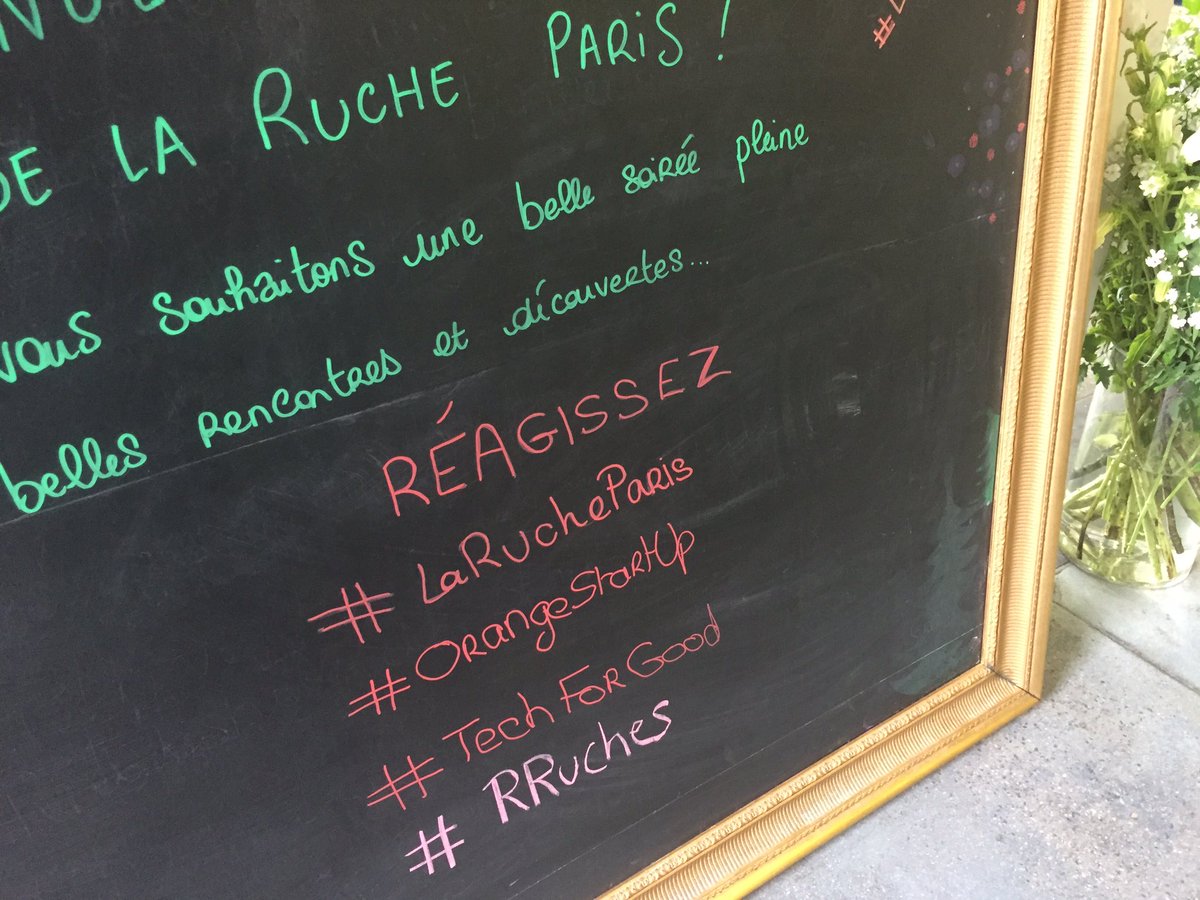 DE LA RUCHE PARIS !
vous souhaitons une belle soirée pleine
belles rencontres et découvertes...
RÉAGISSEZ
# LaRucheParis
# OrangeStartUp
# TechForGood
# RRuches